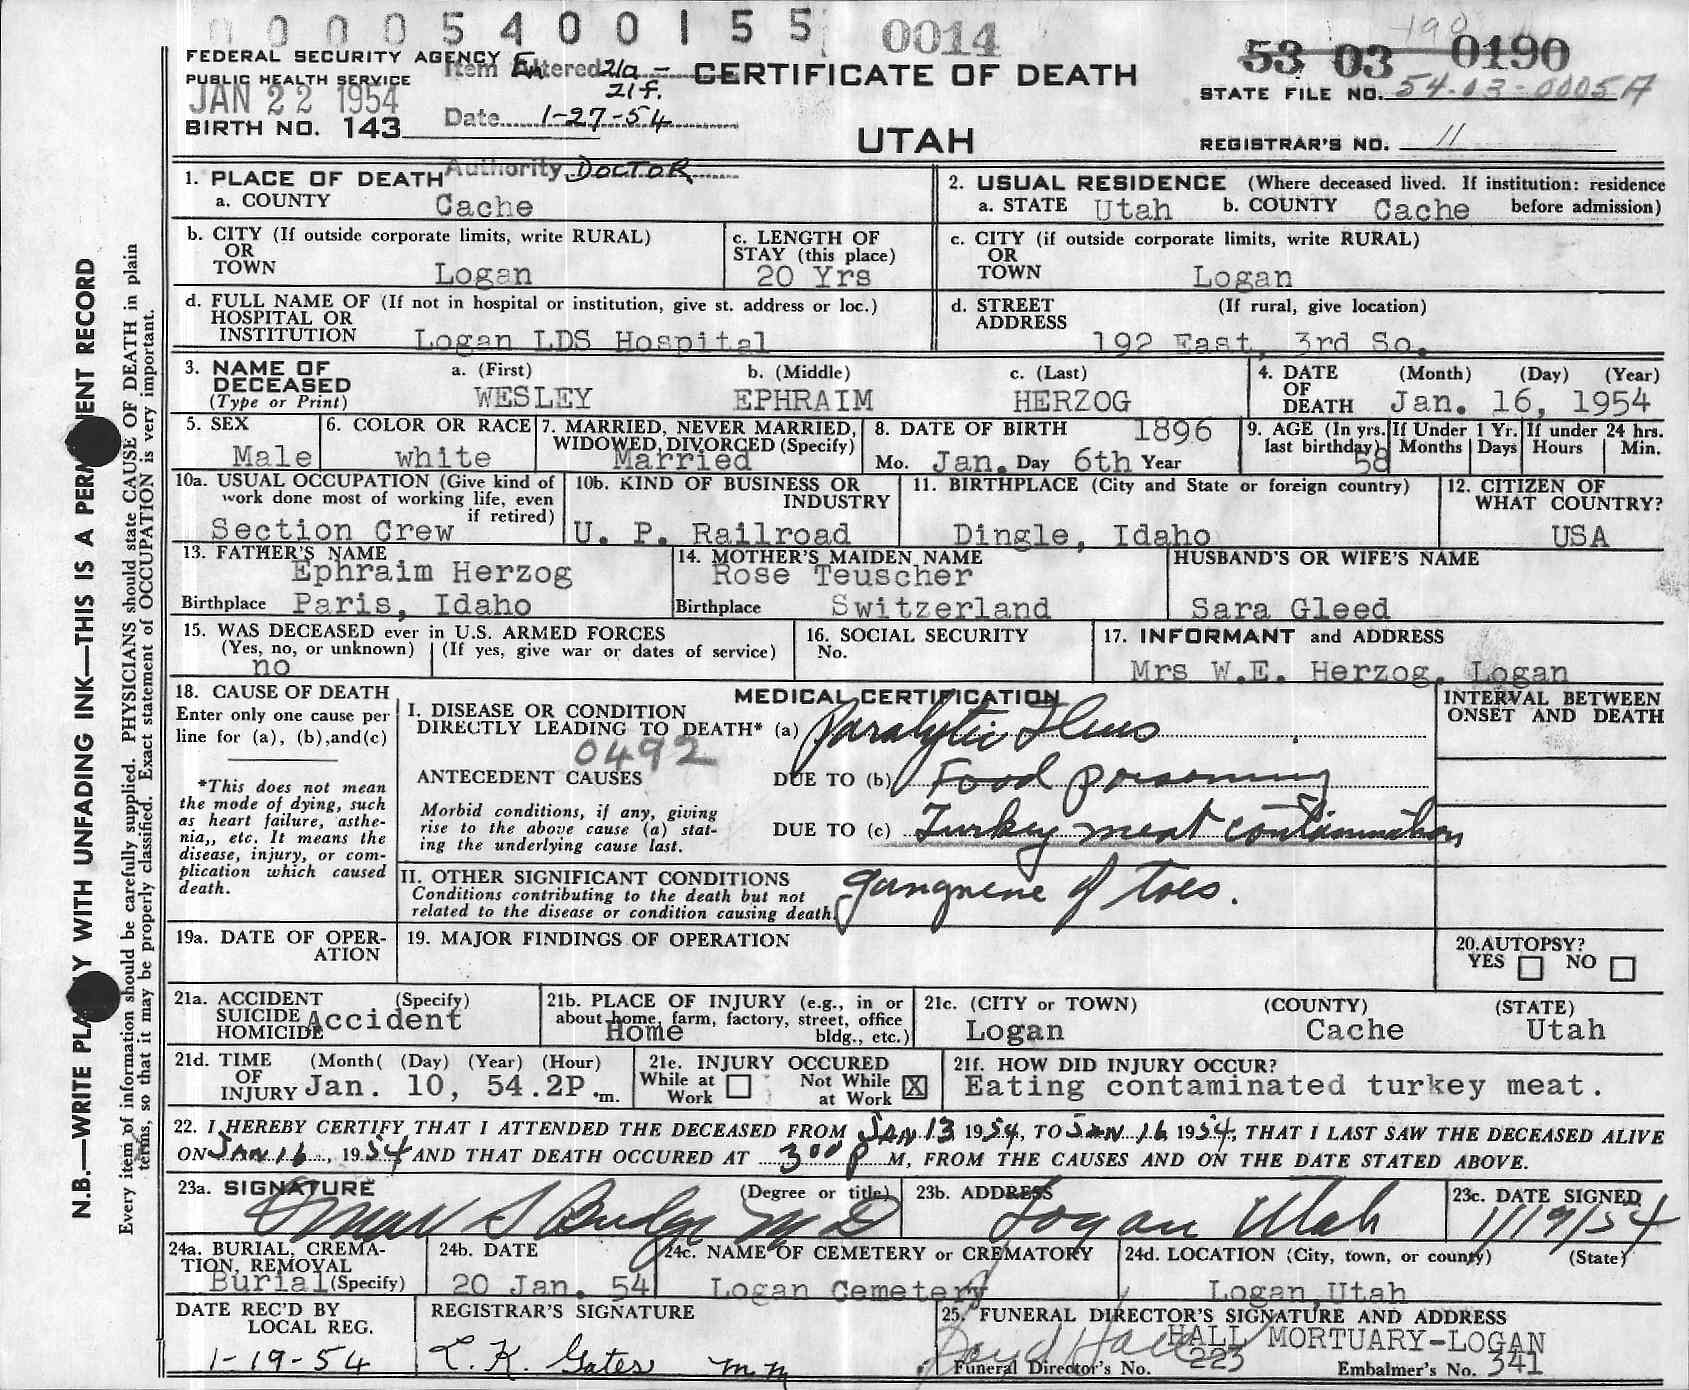 0 0 0 5 4 0 0 1 5 5 0014
190
53 03 0190
FEDERAL SECURITY AGENCY
PUBLIC HEALTH SERVICE
JAN 22 1954
BIRTH NO. 143
Item Entered 21a -
21f.
Date 1-27-54
Authority DOCTOR
CERTIFICATE OF DEATH
UTAH
STATE FILE NO. 54-03-0005A
REGISTRAR'S NO. 11
N.B.—WRITE PLA Y WITH UNFADING INK—THIS IS A PERM ENT RECORD
Every item of information should be carefully supplied. PHYSICIANS should state CAUSE OF DEATH in plain
terms, so that it may be properly classified. Exact statement of OCCUPATION is very important.
1. PLACE OF DEATH
a. COUNTY Cache
2. USUAL RESIDENCE (Where deceased lived. If institution: residence
a. STATE Utah b. COUNTY Cache before admission)
b. CITY (If outside corporate limits, write RURAL)
OR
TOWN Logan
c. LENGTH OF
STAY (this place)
20 Yrs
c. CITY (if outside corporate limits, write RURAL)
OR
TOWN Logan
d. FULL NAME OF (If not in hospital or institution, give st. address or loc.)
HOSPITAL OR
INSTITUTION Logan LDS Hospital
d. STREET (If rural, give location)
ADDRESS
192 East, 3rd So.
3. NAME OF
DECEASED
(Type or Print)
a. (First) b. (Middle) c. (Last)
WESLEY EPHRAIM HERZOG
4. DATE (Month) (Day) (Year)
OF
DEATH Jan. 16, 1954
5. SEX
Male
6. COLOR OR RACE
white
7. MARRIED, NEVER MARRIED,
WIDOWED, DIVORCED (Specify)
Married
8. DATE OF BIRTH 1896
Mo. Jan. Day 6th Year
9. AGE (In yrs.
last birthday)
58
If Under 1 Yr.
Months Days
If under 24 hrs.
Hours Min.
10a. USUAL OCCUPATION (Give kind of
work done most of working life, even
if retired)
Section Crew
10b. KIND OF BUSINESS OR
INDUSTRY
U. P. Railroad
11. BIRTHPLACE (City and State or foreign country)
Dingle, Idaho
12. CITIZEN OF
WHAT COUNTRY?
USA
13. FATHER'S NAME
Ephraim Herzog
Birthplace Paris, Idaho
14. MOTHER'S MAIDEN NAME
Rose Teuscher
Birthplace Switzerland
HUSBAND'S OR WIFE'S NAME
Sara Gleed
15. WAS DECEASED ever in U.S. ARMED FORCES
(Yes, no, or unknown) (If yes, give war or dates of service)
no
16. SOCIAL SECURITY
No.
17. INFORMANT and ADDRESS
Mrs W.E. Herzog, Logan
18. CAUSE OF DEATH
Enter only one cause per
line for (a), (b),and(c)
*This does not mean
the mode of dying, such
as heart failure, asthe-
nia,, etc. It means the
disease, injury, or com-
plication which caused
death.
MEDICAL CERTIFICATION
INTERVAL BETWEEN
ONSET AND DEATH
I. DISEASE OR CONDITION
DIRECTLY LEADING TO DEATH* (a) Paralytic Ileus
0492
ANTECEDENT CAUSES DUE TO (b) Food poisoning
Morbid conditions, if any, giving
rise to the above cause (a) stat-
ing the underlying cause last.
DUE TO (c) Turkey meat contamination
II. OTHER SIGNIFICANT CONDITIONS
Conditions contributing to the death but not
related to the disease or condition causing death.
gangrene of toes.
19a. DATE OF OPER-
ATION
19. MAJOR FINDINGS OF OPERATION
20.AUTOPSY?
YES NO
21a. ACCIDENT (Specify)
SUICIDE
HOMICIDE Accident
21b. PLACE OF INJURY (e.g., in or
about home, farm, factory, street, office
bldg., etc.)
Home
21c. (CITY or TOWN) (COUNTY) (STATE)
Logan Cache Utah
21d. TIME (Month( (Day) (Year) (Hour)
OF
INJURY Jan. 10, 54.2P.m.
21e. INJURY OCCURED
While at Work Not While at Work X
21f. HOW DID INJURY OCCUR?
Eating contaminated turkey meat.
22. I HEREBY CERTIFY THAT I ATTENDED THE DECEASED FROM JAN 13 1954, TO JAN 16 1954, THAT I LAST SAW THE DECEASED ALIVE
ON JAN 16, 1954 AND THAT DEATH OCCURED AT 300 P M, FROM THE CAUSES AND ON THE DATE STATED ABOVE.
23a. SIGNATURE (Degree or title)
S Budge MD
23b. ADDRESS
Logan Utah
23c. DATE SIGNED
1/19/54
24a. BURIAL, CREMA-
TION, REMOVAL
Burial (Specify)
24b. DATE
20 Jan. 54
24c. NAME OF CEMETERY or CREMATORY
Logan Cemetery
24d. LOCATION (City, town, or county) (State)
Logan, Utah
DATE REC'D BY
LOCAL REG.
1-19-54
REGISTRAR'S SIGNATURE
L. K. Gates
25. FUNERAL DIRECTOR'S SIGNATURE AND ADDRESS
HALL MORTUARY-LOGAN
Funeral Director's No. 223 Embalmer's No. 341